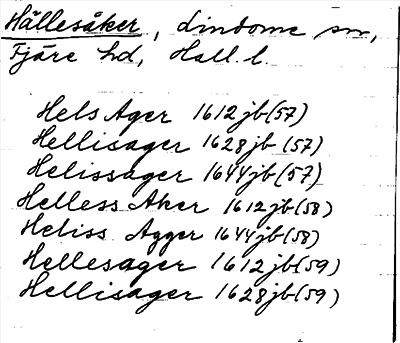 Hällesåker, Lindome sn,
Fjäre hd, Hall. l.
Hels Ager 1612 jb (57)
Hellisager 1628 jb (57)
Helissager 1644 jb (57)
Helless Aker 1612 jb (58)
Heliss Agger 1644 jb (58)
Hellesager 1612 jb (59)
Hellisager 1628 jb (59)